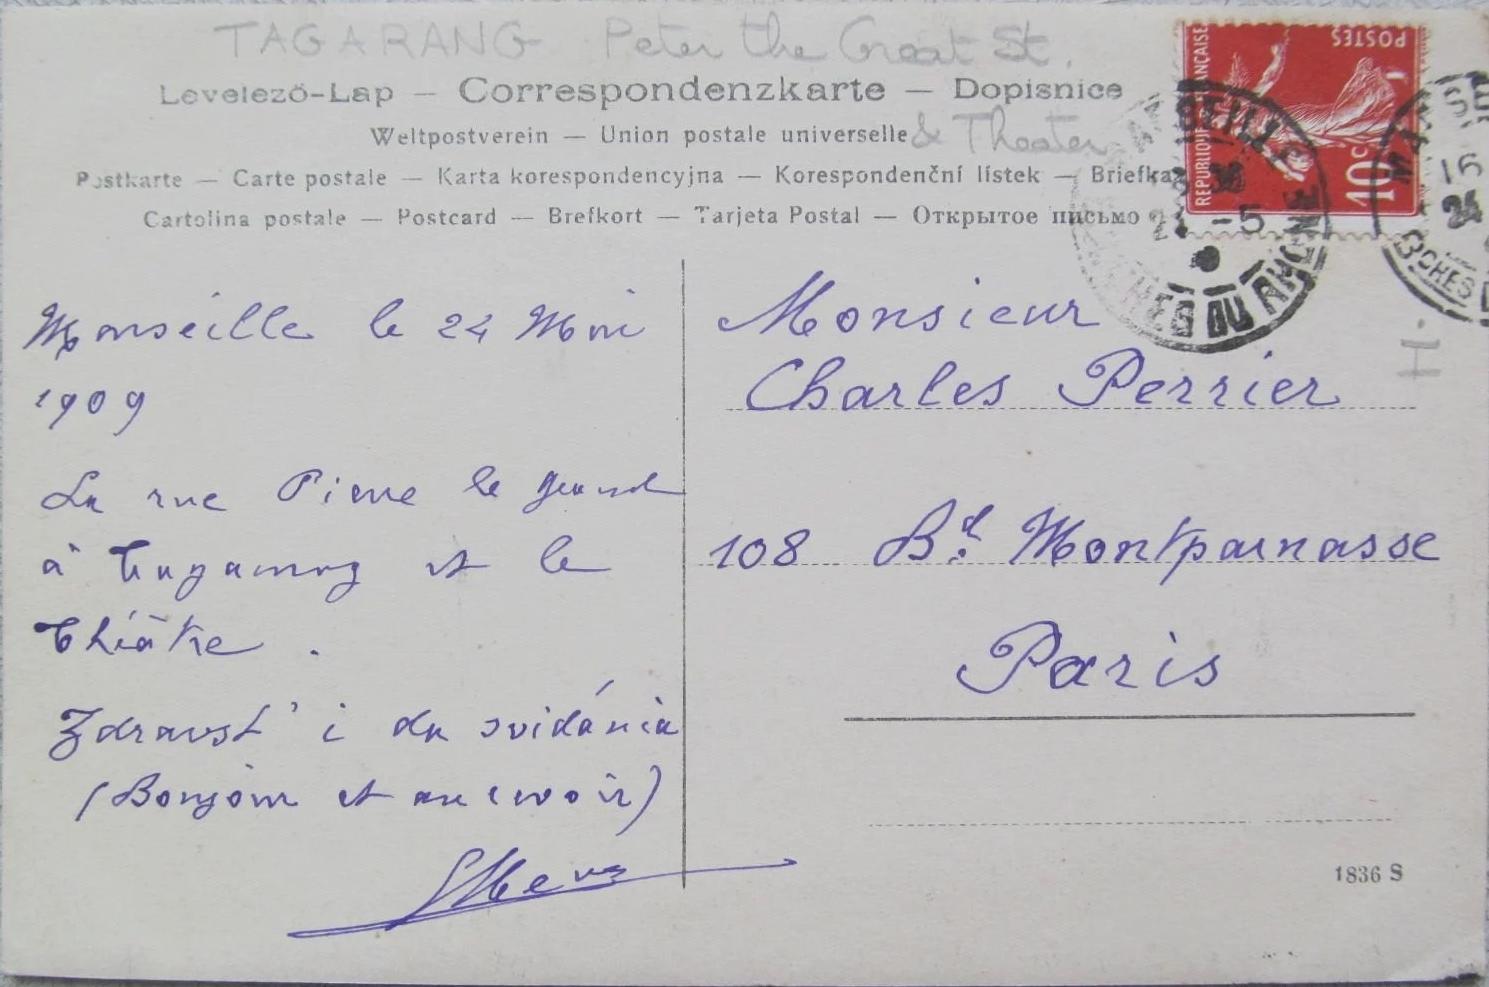 TAGARANG Peter the Great St.
Levelező-Lap — Correspondenzkarte — Dopisnice
Weltpostverein — Union postale universelle
& Theater
Postkarte — Carte postale — Karta korespondencyjna — Korespondenční lístek — Briefka
Cartolina postale — Postcard — Brefkort — Tarjeta Postal — Открытое письмо
REPUBLIQUE FRANÇAISE
POSTES
10c
24 -5
BOUCHES DU RHONE
15
24
Marseille le 24 Mai
1909
La rue Pierre le grand
à Taganrog et le
théâtre .
Zdravst' i da svidánia
(Bonjour et au revoir)
Monsieur
Charles Perrier
108 Bd. Montparnasse
Paris
1836 S